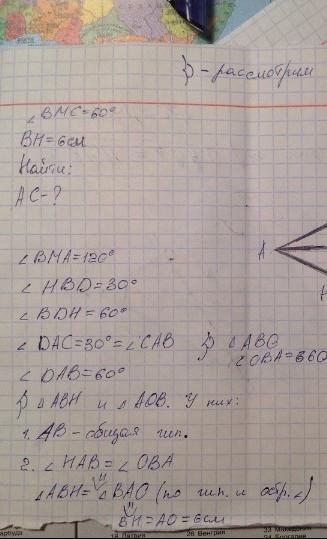 } - рассмотрим
∠BMC=60°
BH=6см
Найти:
AC-?
∠BMA=120°
A
∠HBD=30°
∠BDH=60°
∠DAC=30°=∠CAB
∠OBA=
∠DAB=60°
ABH и AOB. У них:
1. AB - общая гип.
2. ∠HAB=∠OBA
ABH= BAO (по гип. и остр.∠)
BH=AO=6см
18 Латвия
26 Венгрия
33 Македония